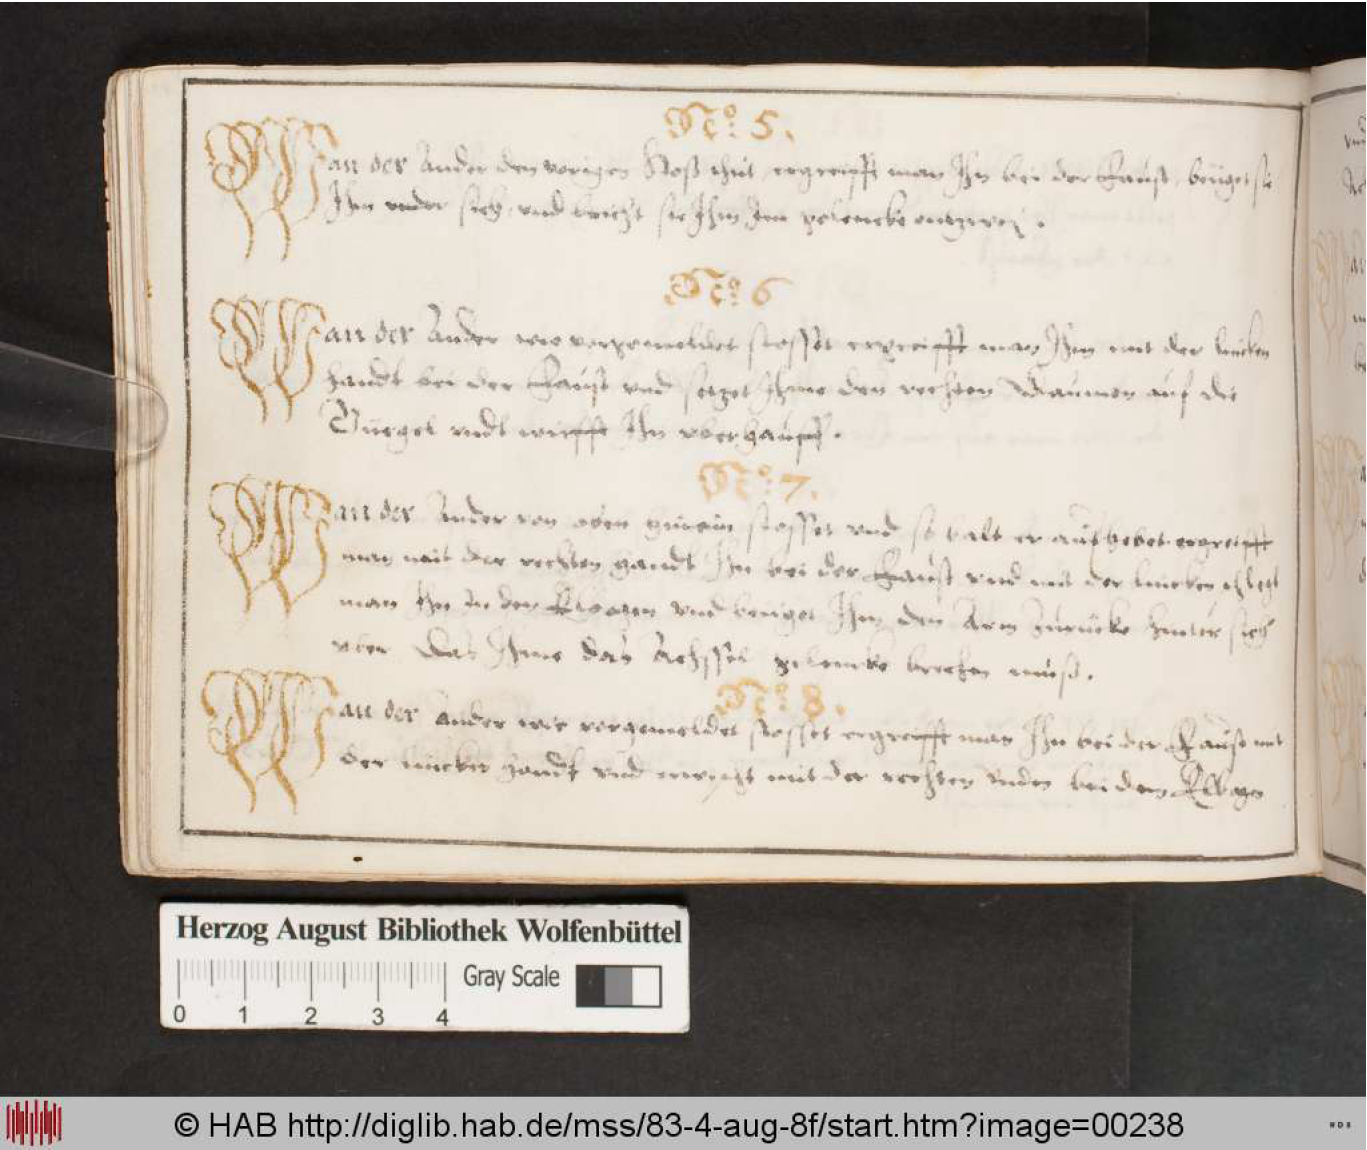 No: 5.
Wan der Ander den vorigen Stoß thut, ergreifft man Ihn bei der Faust, beüget sie
Ihm under sich, und bricht sie Ihm Im gelencke entzwey.
No: 6
Wan der Ander wie vorgemeldet stosset ergreifft man Ihm mit der lincken
handt bei der Faust und setzet Ihme den rechten Daumen auf die
Gurgel undt wirfft Ihn uberhauff.
No: 7.
Wan der Ander von oben hinein stosset und so balt er aufhebet ergreifft
man mit der rechten handt Ihn bei der Faust und mit der lincken schlegt
man Ihn In den Elbogen und beuget Ihm den Arm zurücke hinter sich
uber Das Ihme das Achssel gelencke brechen muß.
No: 8.
Wan der ander wie vorgemeldet stosset ergreifft man Ihn bei der Faust mit
der lincken handt und erwischt mit der rechten Unden bei dem Elbogen
Herzog August Bibliothek Wolfenbüttel
Gray Scale
0 1 2 3 4
© HAB http://diglib.hab.de/mss/83-4-aug-8f/start.htm?image=00238